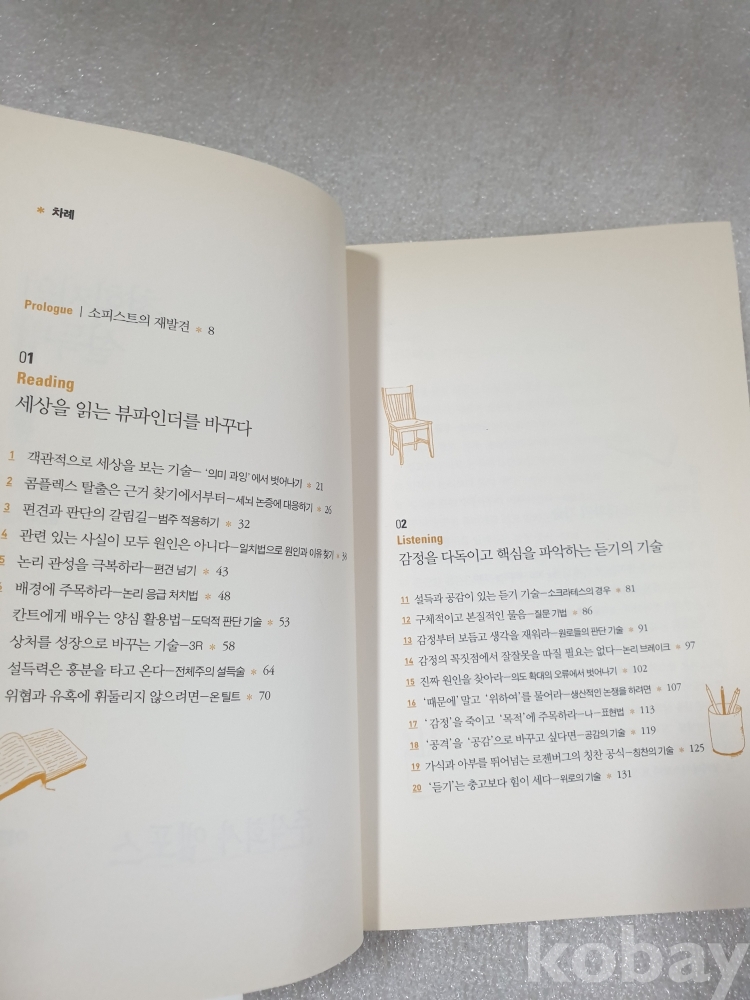 * 차례
Prologue | 소피스트의 재발견 * 8
01
Reading
세상을 읽는 뷰파인더를 바꾸다
1 객관적으로 세상을 보는 기술–‘의미 과잉’에서 벗어나기 * 21
2 콤플렉스 탈출은 근거 찾기에서부터–세뇌 논증에 대응하기 * 26
3 편견과 판단의 갈림길–범주 적용하기 * 32
4 관련 있는 사실이 모두 원인은 아니다–일치법으로 원인과 이유 찾기 *
5 논리 관성을 극복하라–편견 넘기 * 43
배경에 주목하라–논리 응급 처치법 * 48
칸트에게 배우는 양심 활용법–도덕적 판단 기술 * 53
상처를 성장으로 바꾸는 기술–3R * 58
설득력은 흥분을 타고 온다–전체주의 설득술 * 64
위협과 유혹에 휘둘리지 않으려면–온 틸트 * 70
02
Listening
감정을 다독이고 핵심을 파악하는 듣기의 기술
11 설득과 공감이 있는 듣기 기술–소크라테스의 경우 * 81
12 구체적이고 본질적인 물음–질문 기법 * 86
13 감정부터 보듬고 생각을 재워라–원로들의 판단 기술 * 91
14 감정의 꼭짓점에서 잘잘못을 따질 필요는 없다–논리 브레이크 * 97
15 진짜 원인을 찾아라–의도 확대의 오류에서 벗어나기 * 102
16 ‘때문에’ 말고 ‘위하여’를 물어라–생산적인 논쟁을 하려면 * 107
17 ‘감정’을 죽이고 ‘목적’에 주목하라–나–표현법 * 113
18 ‘공격’을 ‘공감’으로 바꾸고 싶다면–공감의 기술 * 119
19 가식과 아부를 뛰어넘는 로젠버그의 칭찬 공식–칭찬의 기술 * 125
20 ‘듣기’는 충고보다 힘이 세다–위로의 기술 * 131
kobay